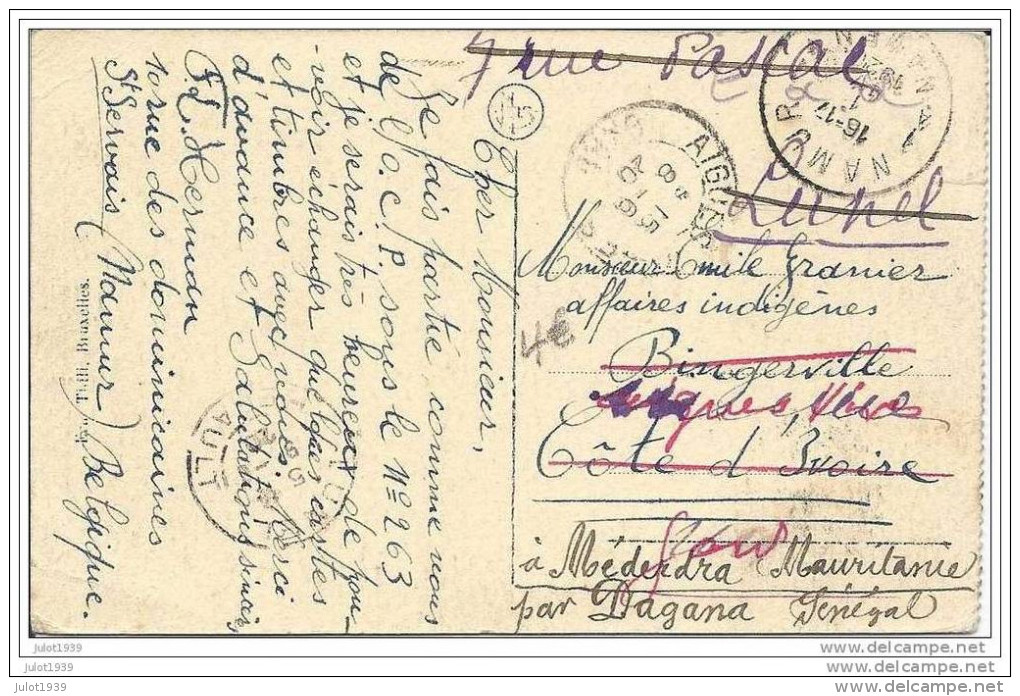 7 rue Pascal
Lunel
Monsieur Emile Granier
affaires indigènes
Bingerville
Aigues Vives
Côte d'Ivoire
Gard
à Méderdra Mauritanie
par Dagana Sénégal
4€
NAMUR
16-17
AIGUES
Cher Monsieur,
Je fais partie comme vous
de l'O.C.P. sous le N° 263
et je serais très heureux de pou-
-voir échanger quelques cartes
et timbres avec vous. Merci
d'avance et Salutations sincères,
Hermann
10 rue des dominicaines
St Servais (Namur) Belgique.
Thill, Bruxelles.
julot1939
julot1939
julot1939
www.delcampe.net
www.delcampe.net
www.delcampe.net